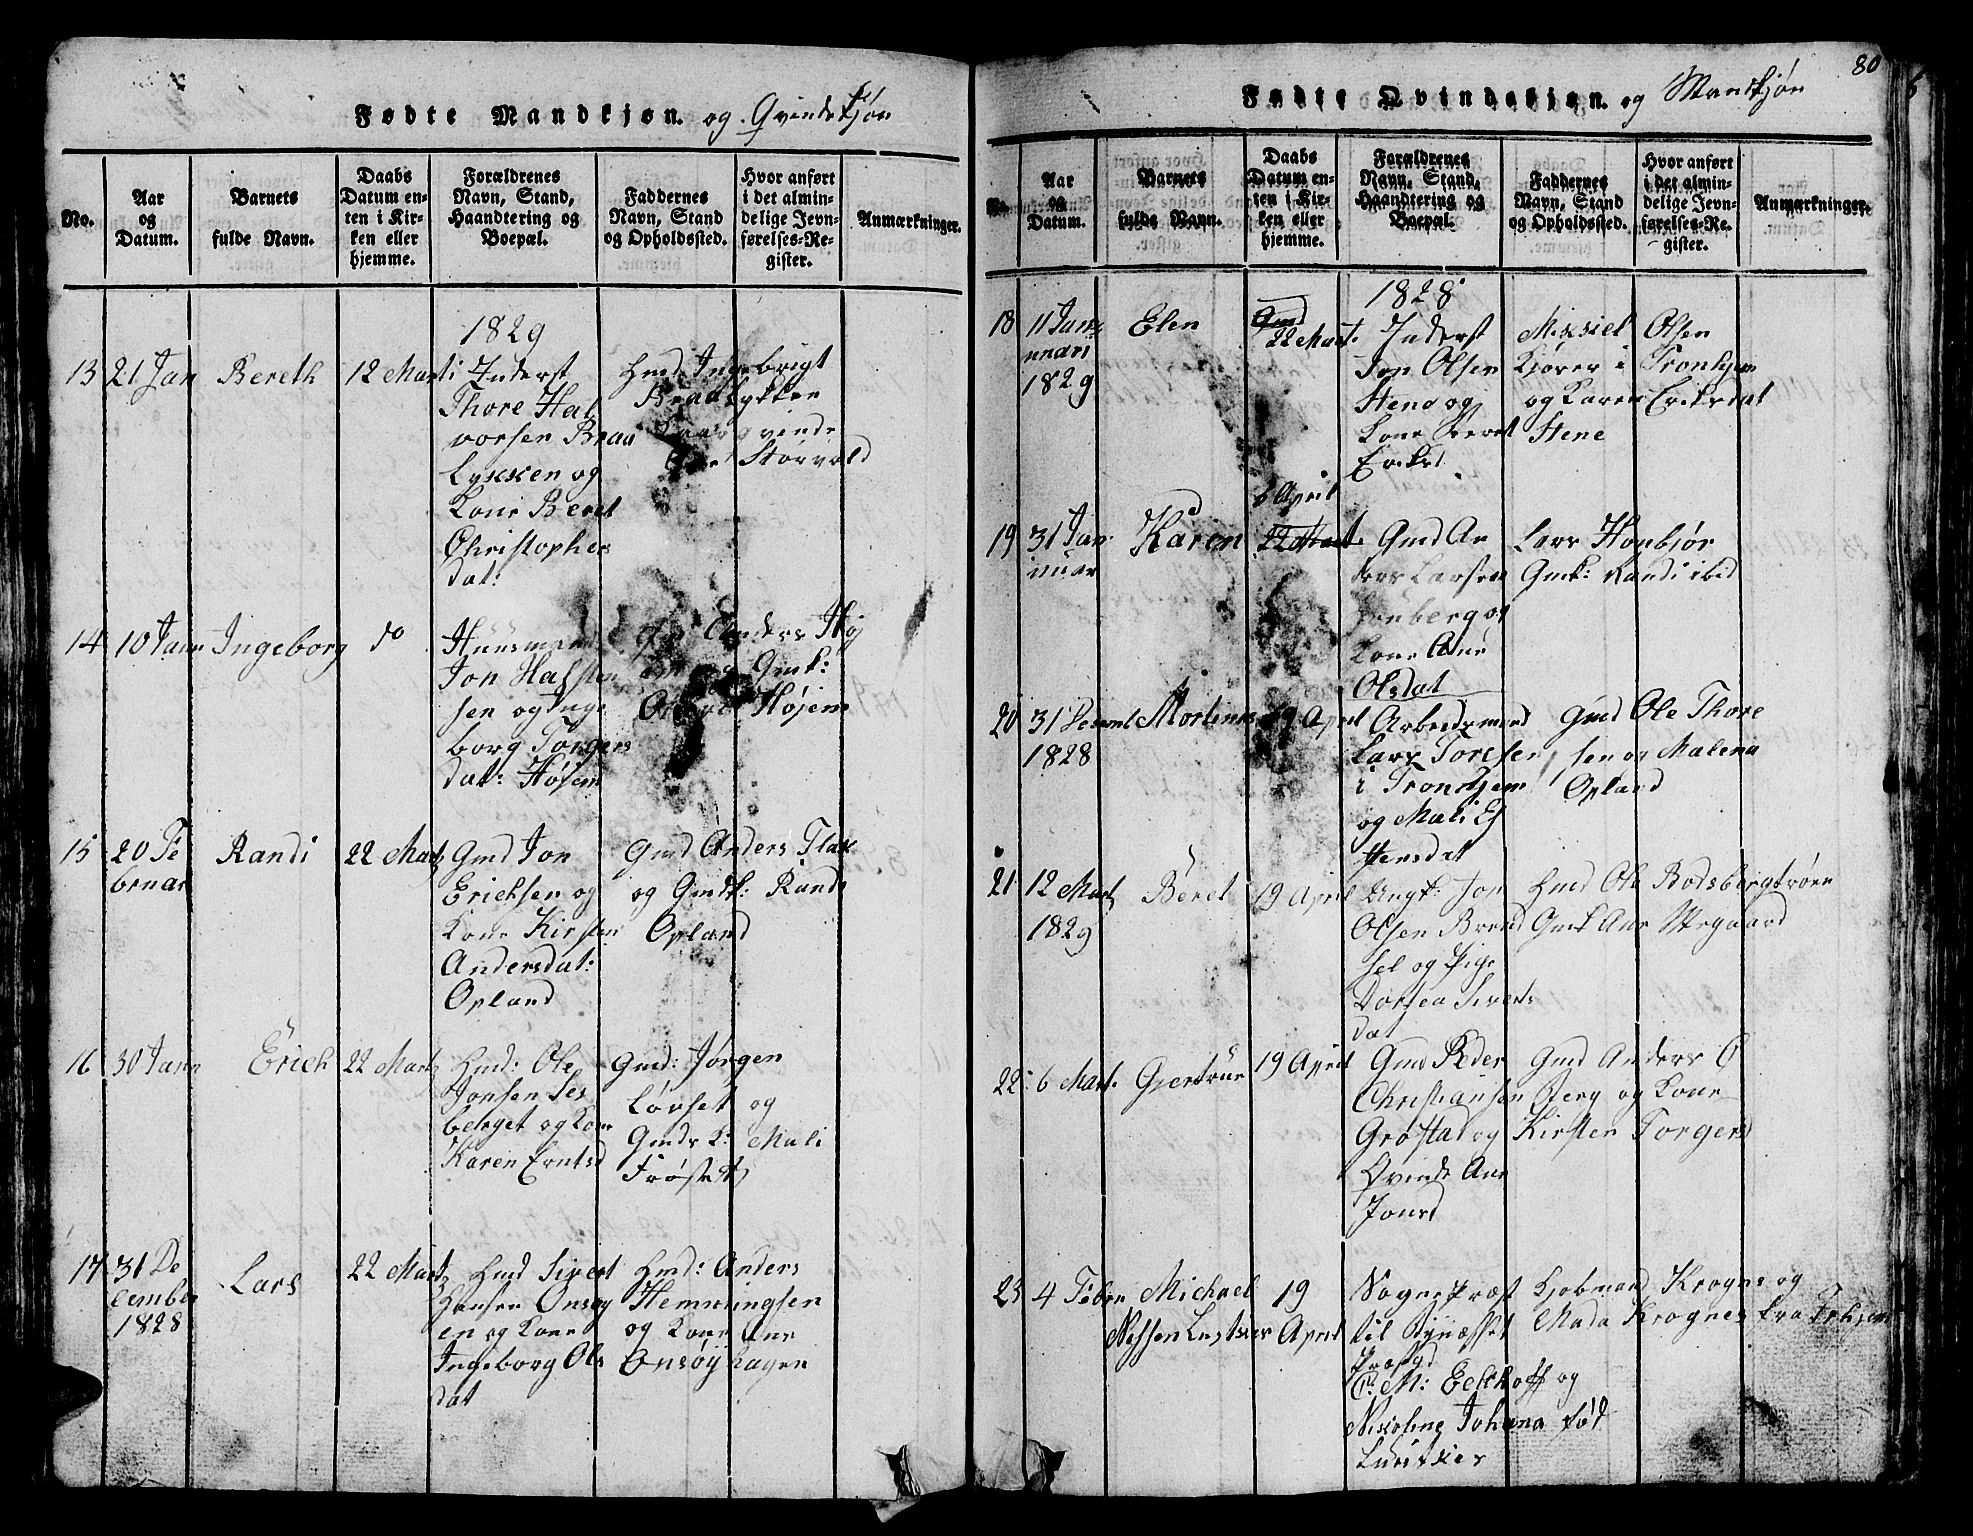 80
Fødte Mandkjøn. og Qvindekjøn
No.
Aar
og
Datum.
Barnets
fulde Navn.
Daabs
Datum en-
ten i Kir-
ken eller
hjemme.
Forældrenes
Navn, Stand,
Haandtering og
Boepæl.
Faddernes
Navn, Stand
og Opholdssted.
Hvor anført
i det almin-
delige Jevn-
førelses-Re-
gister.
Anmærkninger.
1829
13 21 Jan Bereth 12 Marti
Inderst
Thore Hal
vorsen Braa
Lykken og
Kone Beret
Christophers
dat:
Hmd Ingebrigt
Braa Lykken
Qvinde
Størvold
14 10 Janr Ingeborg do
Huusman
Jon Halsten
sen og Inge
borg Torgers
dat: Højem
Anders Høj
em og Gmk:
Højem
15 20 Fe
bruar
Randi 22 Marts
Gmd Jon
Erichsen og
Kone Kirsten
Andersdat:
Opland
Gmd Anders Flak
og Gmdk: Randi
Opland
16 30 Janr Erich 22 Marts
Hmd: Ole
Jonsen Ses
berget og Kone
Karen Erntsd
Gmd: Jørgen
Løvset og
Gmds K: Mali
Frøset
17 31 De
cember
1828
Lars 22 Marts
Hmd Sivert
Hansen Onsøy
en og Kone
Ingeborg Ols
dat
Hmd: Anders
Hemmingsen
og Kone Ane
Onsøyhagen
Fødte Qvindekjøn. og Mandkjøn
No.
Aar
og
Datum.
Barnets
fulde Navn.
Daabs
Datum en-
ten i Kir-
ken eller
hjemme.
Forældrenes
Navn, Stand,
Haandtering og
Boepæl.
Faddernes
Navn, Stand
og Opholdssted.
Hvor anført
i det almin-
delige Jevn-
førelses-Re-
gister.
Anmærkninger.
1828
18 11 Jan
nuari
1829
Elen
Gmd
22 Mart.
Inderst
Jon Olsen
Steno og
Kone Beret
Ericksd
Mikkel Olsen
Kjører i Tronhjem
og Karen Eriksdat
Stene
19 31 Jan
nuar
Karen
6 April
22 Mart
Gmd An
ders Larsen
Honberg og
Kone Ane
Olsdat
Lars Honbjør
Gmk: Randi ibid
20 31 Decembl
1828
Mortinus 19 April
Arbeidsmand
Lars Toresen
i Trondhjem
og Mali Es
tensdat
Gmd Ole Thore
sen og Malena
Opland
21 12 Marts
1829
Beret 19 April
Ungk: Jon
Olsen Brend
sel og Pige
Dorthea Siverts
dat
Hmd Ole Rodsbergtrøen
Gmk Ane Wegaard
22 6 Mart. Gjertrue 19 April
Gmd Peder
Christiansen
Grøstad og
Qvinde Ane
Jonsd
Gmd Anders Ø
Berg og Kone
Kirsten Torgersd
23 4 Febr Michael
Nyssen Lustkier
19
April
Sognepræst
til Bynæsset
Præstgd
C: M: Eckhoff og
Nikoline Johana fød
Lundskier
Kjøbmand Krogne og
Mada Krognes fra Trhjem